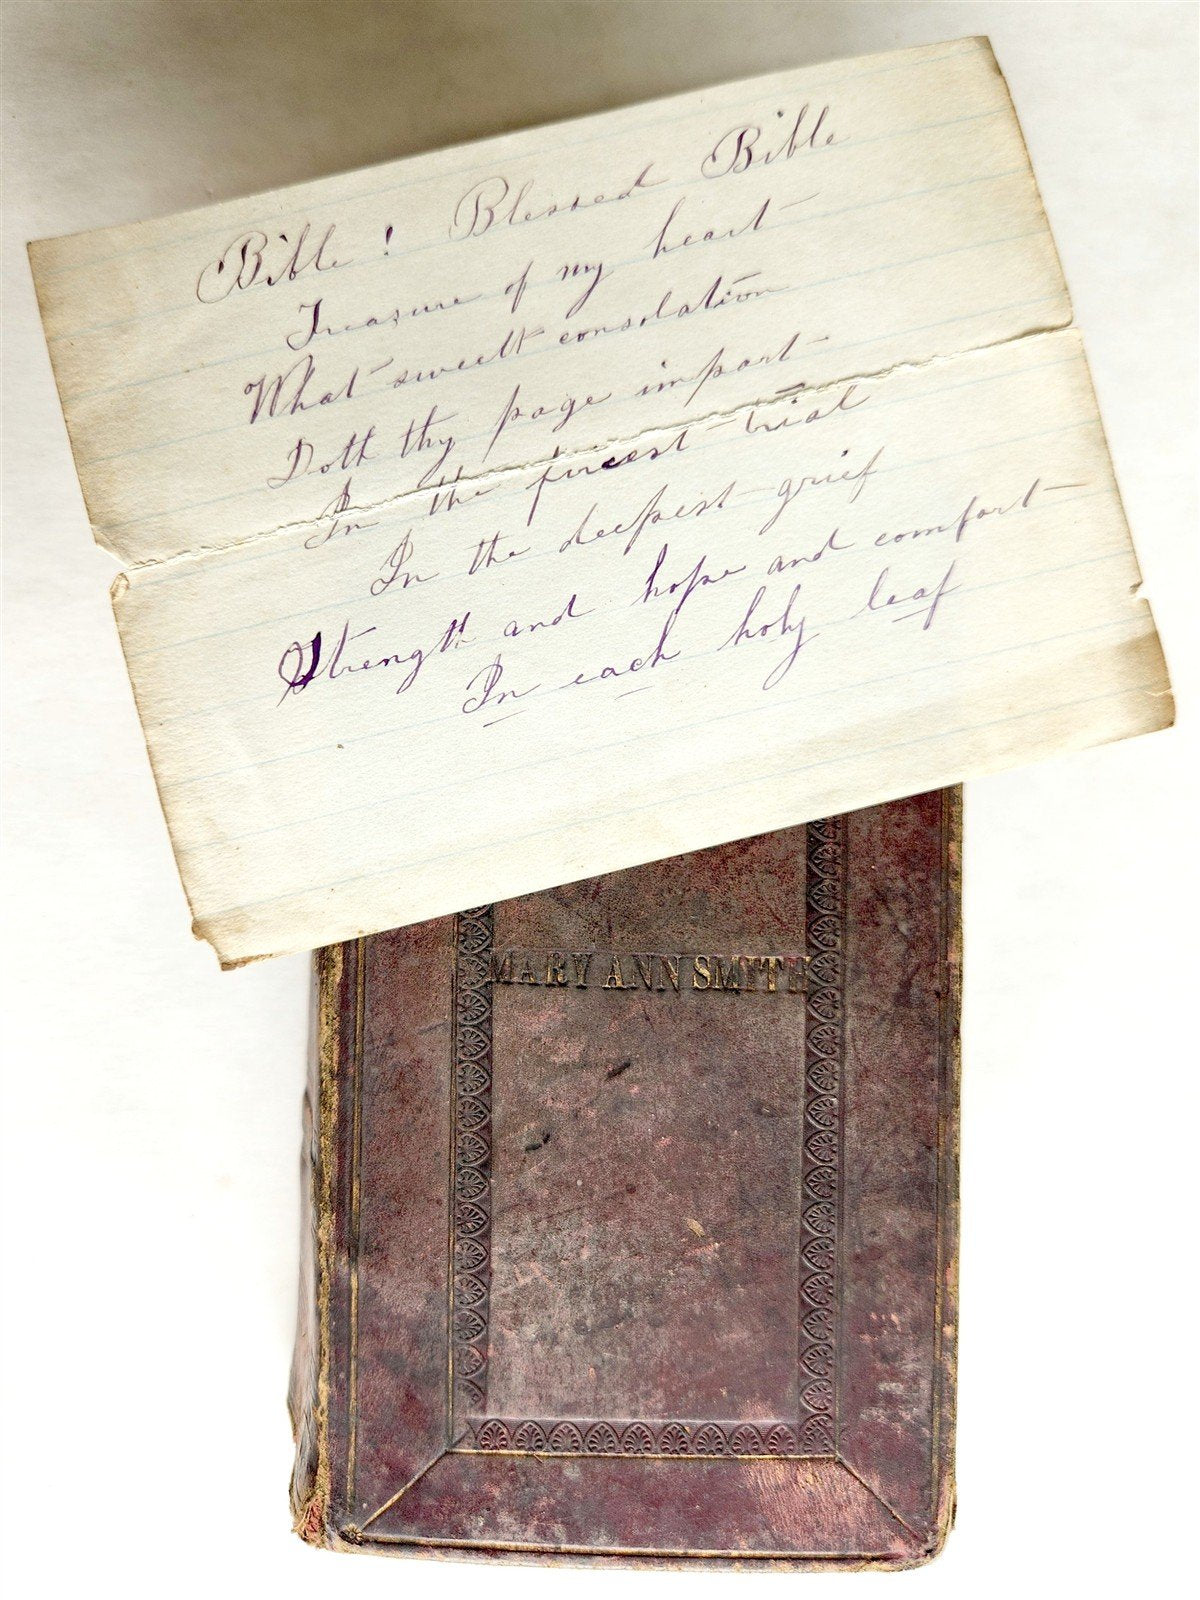 Bible! Blessed Bible
Treasure of my heart
What sweett consolation
Doth thy page impart
In the fircest trial
In the deepest grief
Strength and hope and comfort
In each holy leaf
MARY ANN SMITH